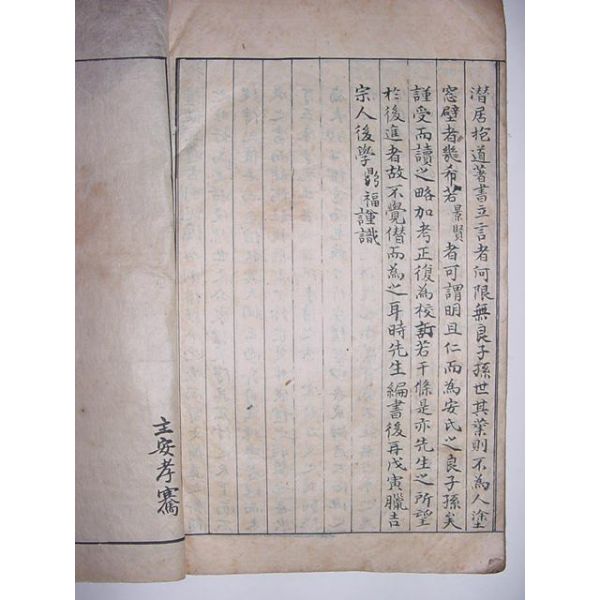 潜居抱道著書立言者何限無良子孫世其業則不為人塗
窓壁者幾希若景賢者可謂明且仁而為安氏之良子孫矣
謹受而讀之略加考正復為校訂若干條是亦先生之所望
於後進者故不覺僭而為之耳時先生編書後再戊寅臘吉
宗人後學鼎福謹識
主安孝騫